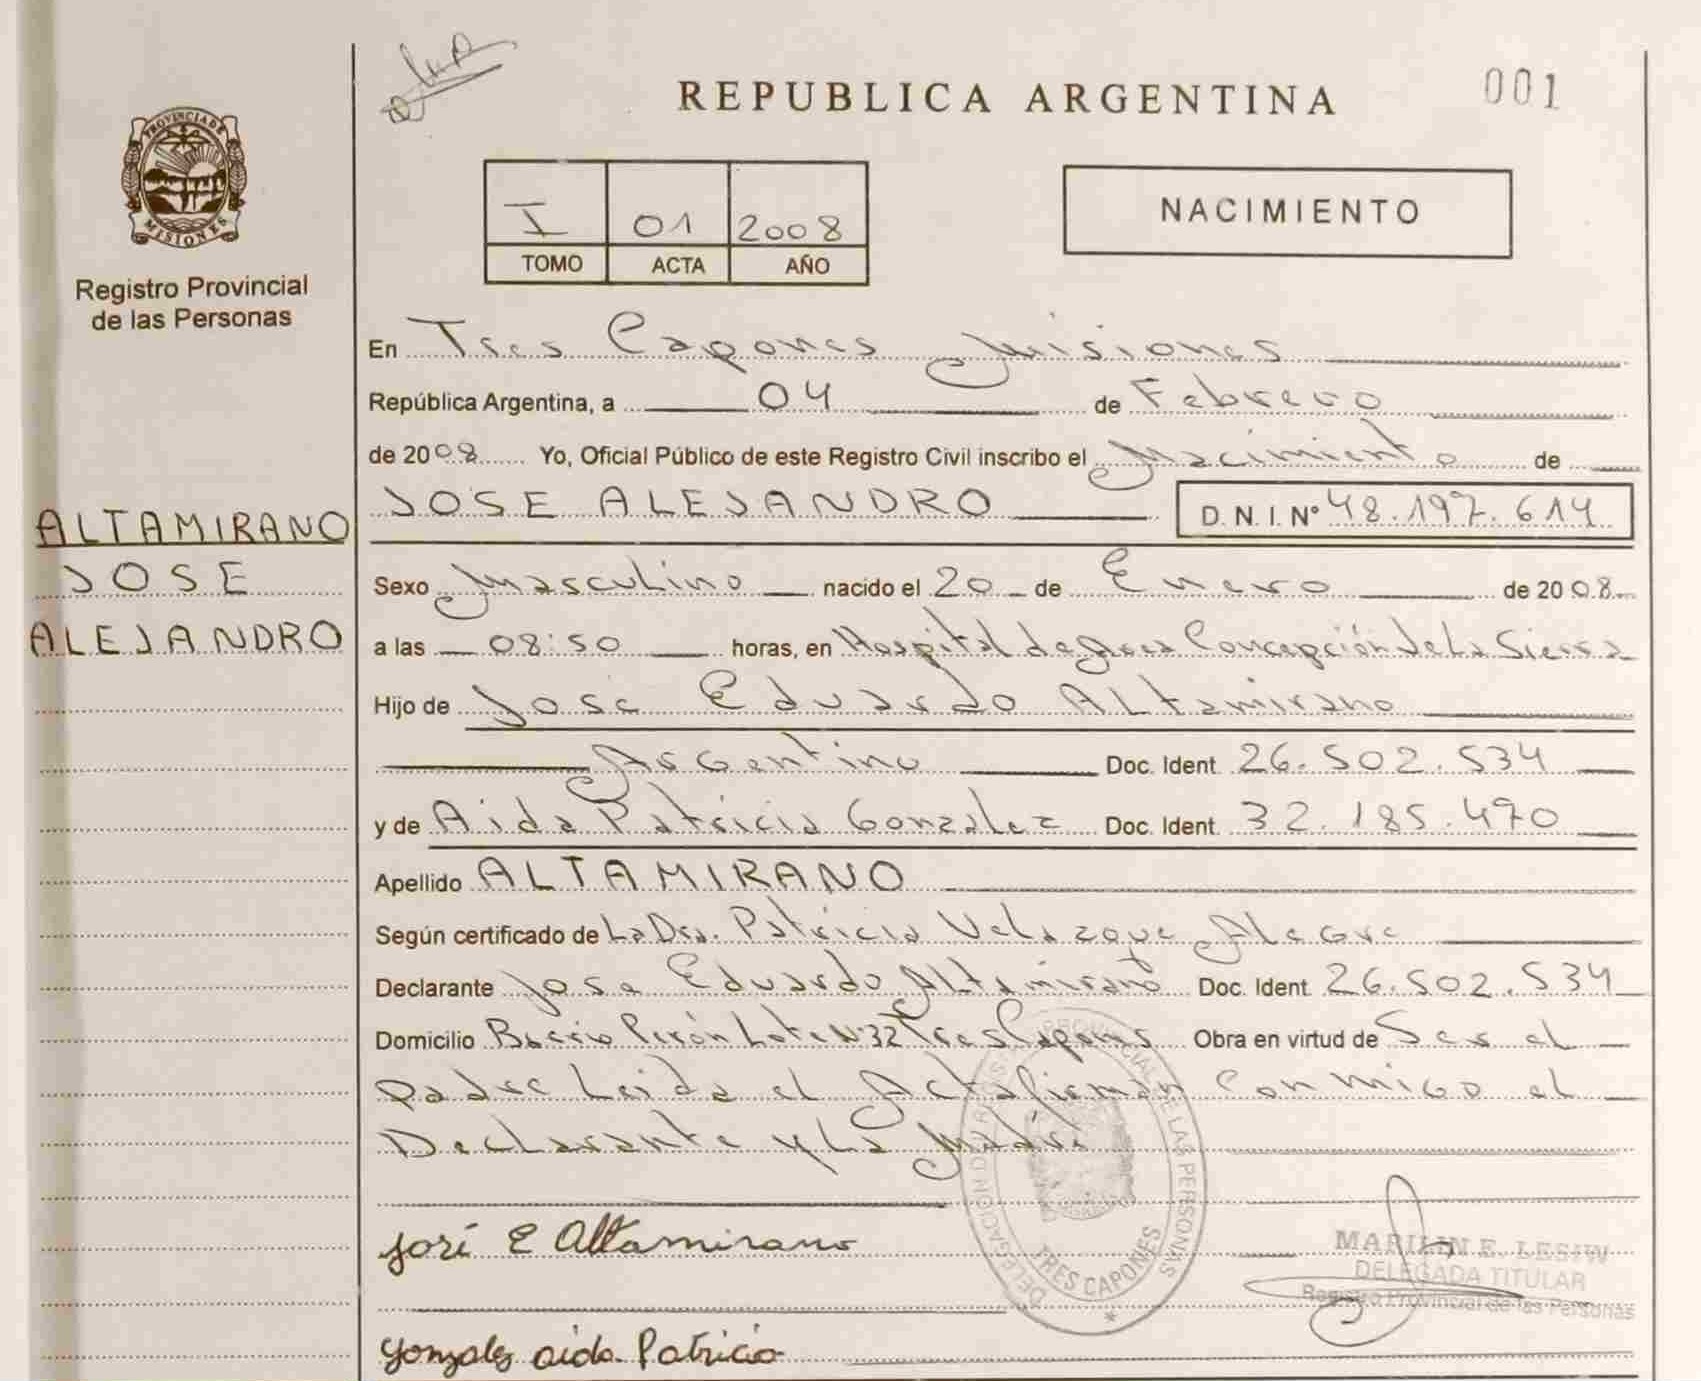 REPUBLICA ARGENTINA
001
PROVINCIA DE
MISIONES
Registro Provincial
de las Personas
I 01 2008
TOMO ACTA AÑO
NACIMIENTO
En Tres Capones Misiones
República Argentina, a 04 de Febrero
de 2008 Yo, Oficial Público de este Registro Civil inscribo el Nacimiento de
JOSE ALEJANDRO D.N.I. Nº 48.197.614
ALTAMIRANO
JOSE
ALEJANDRO
Sexo Masculino nacido el 20 de Enero de 2008
a las 08:50 horas, en Hospital de Area Concepción de La Sierra
Hijo de Jose Eduardo Altamirano
Argentino Doc. Ident 26.502.534
y de Aida Patricia Gonzalez Doc. Ident 32.185.470
Apellido ALTAMIRANO
Según certificado de La Dra. Patricia Velazque Alegre
Declarante Jose Eduardo Altamirano Doc. Ident 26.502.534
Domicilio Barrio Perón Lote Nº32 Tres Capones Obra en virtud de Ser el
Padre Leida el Acta firman Conmigo el
Declarante y La Madre
José E Altamirano
Gonzalez aida Patricia
DELEGACION REGISTRO PROVINCIAL DE LAS PERSONAS
TRES CAPONES
MARILIN E. LESIW
DELEGADA TITULAR
Registro Provincial de las Personas